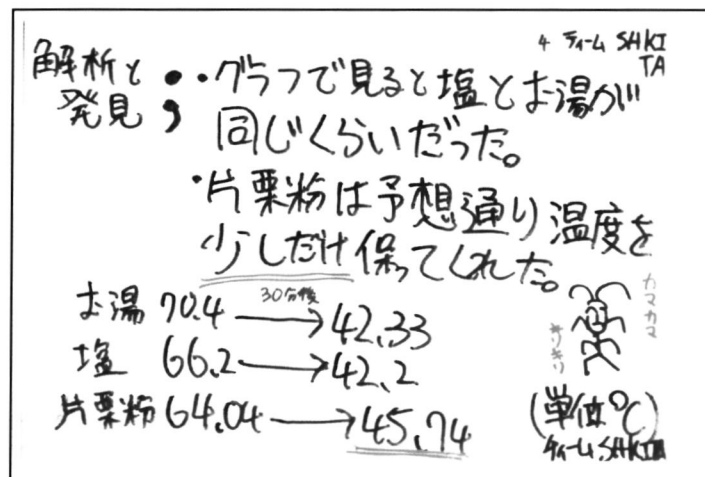 4 ティーム SHKI
TA
解析と
発見
・グラフで見ると塩とお湯が
同じくらいだった。
・片栗粉は予想通り温度を
少しだけ保ってくれた。
お湯 70.4 30分後→ 42.33
塩 66.2 → 42.2
片栗粉 64.04 → 45.74
カマカマ
キリキリ
(単位℃)